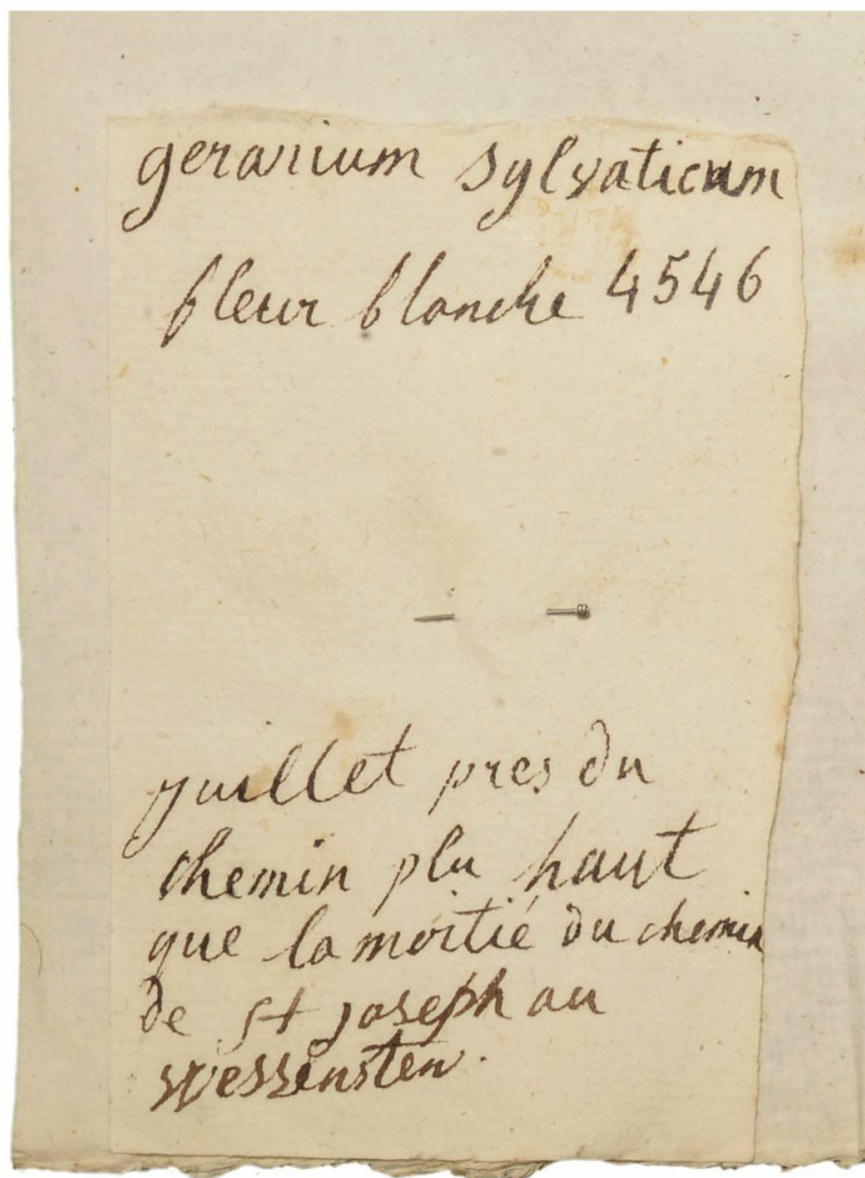 geranium sylvaticum
fleur blanche 4546
juillet pres du
chemin plu haut
que la moitié du chemin
de st joseph au
Wessensten.